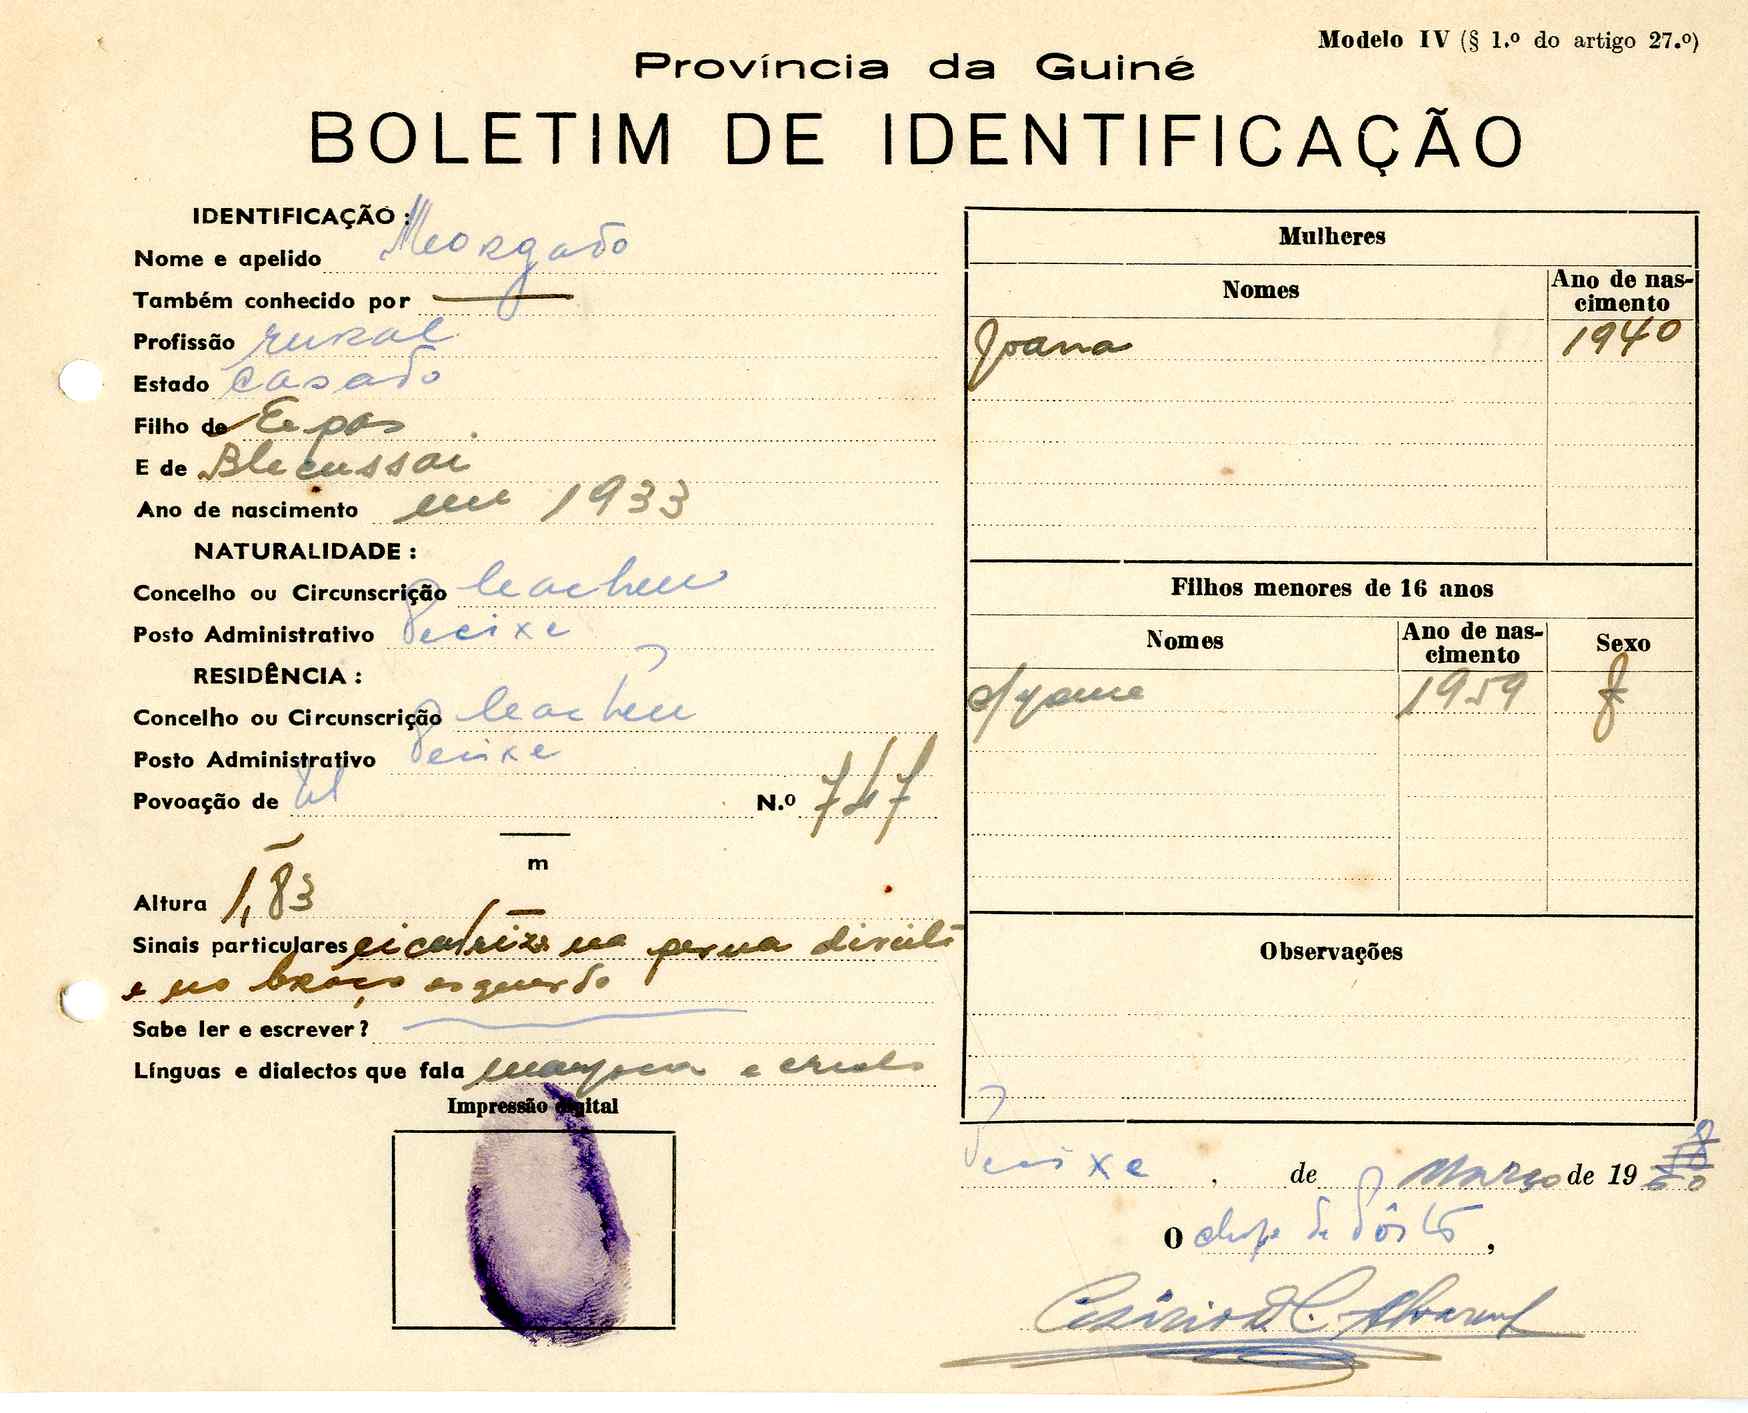 Modelo IV (§ 1.º do artigo 27.º)
Província da Guiné
BOLETIM DE IDENTIFICAÇÃO
IDENTIFICAÇÃO:
Nome e apelido Morgado
Também conhecido por
Profissão rural
Estado casado
Filho de
E de Blecussai
Ano de nascimento em 1933
NATURALIDADE:
Concelho ou Circunscrição Cacheu
Posto Administrativo Pecixe
RESIDÊNCIA:
Concelho ou Circunscrição Cacheu
Posto Administrativo Pecixe
Povoação de N.º
m
Altura 1,83
Sinais particulares cicatrizes na perna direita
e no braço esquerdo
Sabe ler e escrever?
Línguas e dialectos que fala e crioulo
Impressão digital
Mulheres
Nomes Ano de nas-
cimento
Joana 1940
Filhos menores de 16 anos
Nomes Ano de nas-
cimento Sexo
1959 f
Observações
Pecixe, de Março de 19
O chefe de Pôsto,